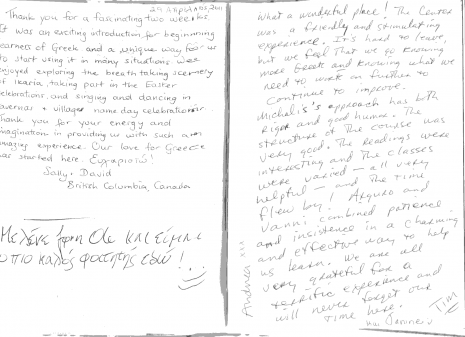 29 Απριλίου, 2011
Thank you for a fascinating two weeks.
It was an exciting introduction for beginning
learners of Greek and a unique way for us
to start using it in many situations. We
enjoyed exploring the breathtaking scenery
of Ikaria, taking part in the Easter
celebrations, and singing and dancing in
tavernas + villages name day celebrations.
Thank you for your energy and
imagination in providing us with such an
amazing experience. Our love for Greece
has started here. Ευχαριστώ!
Sally, David
British Columbia, Canada
Με λένε και είμαι
ο πιο καλός φοιτητής εδώ!
What a wonderful place! The Center
was a friendly and stimulating
experience. It's hard to leave,
but we feel that we go knowing
more Greek and knowing what we
need to work on further to
continue to improve.
Michalis's approach has both
rigor and good humor. The
structure of the course was
very good. The readings were
interesting and the classes
were varied — all very
helpful — and the time
flew by! Argyro and
Yanni combined patience
and insistence in a charming
and effective way to help
us learn. We are all
very grateful for a
terrific experience and
will never forget our
time here.
Tim
και Janine
Andrea xxx